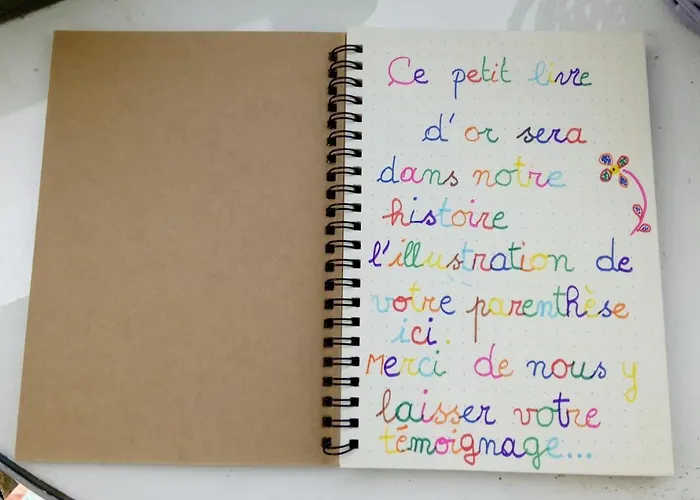 Ce petit livre
d'or sera
dans notre
histoire
l'illustration de
votre parenthèse
ici.
Merci de nous y
laisser votre
témoignage...